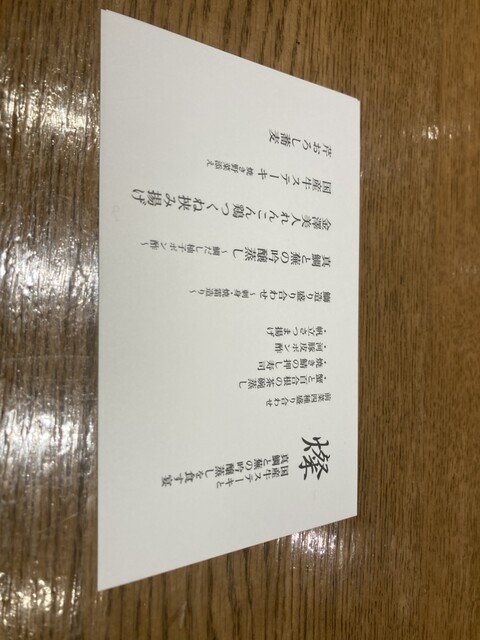 燦
国産牛ステーキと
真鯛と蕪の吟醸蒸しを食す宴
前菜四種盛り合わせ
・蟹と百合根の茶碗蒸し
・焼き鯖の押し寿司
・河豚皮ポン酢
・帆立さつま揚げ
鰤造り盛り合わせ
～刺身・焼霜造り～
真鯛と蕪の吟醸蒸し
～鯛だし柚子ポン酢～
金澤美人れんこん鶏つくね挟み揚げ
国産牛ステーキ
焼き野菜添え
芹おろし蕎麦